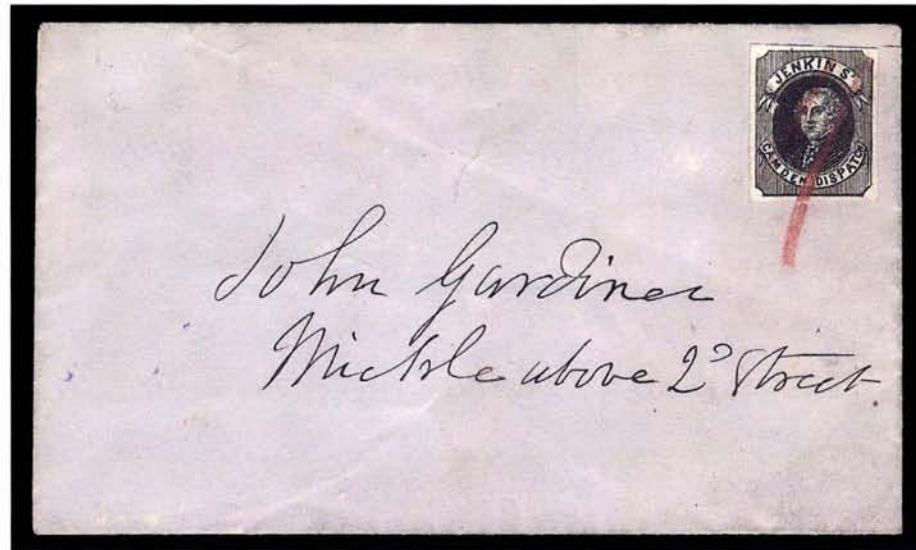 JENKINS'
CAMDEN DISPATCH
John Gardiner
Mickle above 2ᵈ Street